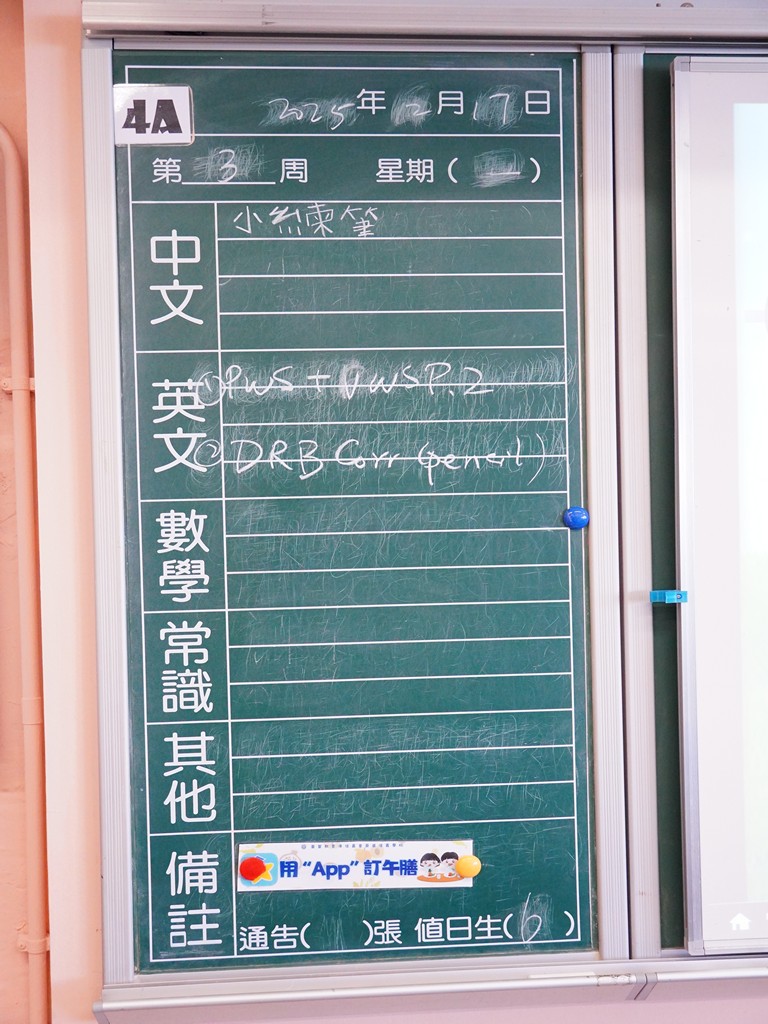 4A
2025年2月17日
第3周 星期(一)
中文
小練筆
英文
①PWS + VWS P.2
②DRB Corr (pencil)
數學
常識
其他
備註
用“App”訂午膳
通告( )張 值日生(6)